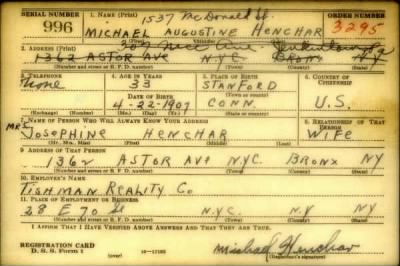 SERIAL NUMBER 1. NAME (Print) ORDER NUMBER
1537 McDonald St.
996 MICHAEL AUGUSTINE HENCHAR 3295
(First) (Middle) (Last)
2. ADDRESS (Print)
1362 ASTOR AVE N.Y.C. BRONX NY
(Number and street or R. F. D. number) (Town) (County) (State)
3. TELEPHONE 4. AGE IN YEARS 5. PLACE OF BIRTH 6. COUNTRY OF CITIZENSHIP
None 33 STANFORD
DATE OF BIRTH
4-22-1907 CONN. U.S.
(Exchange) (Number) (Mo.) (Day) (Yr.) (Town or county) (State or country)
7. NAME OF PERSON WHO WILL ALWAYS KNOW YOUR ADDRESS 8. RELATIONSHIP OF THAT PERSON
MRS JOSEPHINE HENCHAR WIFE
(Mr., Mrs., Miss) (First) (Middle) (Last)
9. ADDRESS OF THAT PERSON
1362 ASTOR AVE N.Y.C. BRONX NY
(Number and street or R. F. D. number) (Town) (County) (State)
10. EMPLOYER'S NAME
TISHMAN REALITY Co
11. PLACE OF EMPLOYMENT OR BUSINESS
28 E 70 St N.Y.C. N.Y. NY
(Number and street or R. F. D. number) (Town) (County) (State)
I AFFIRM THAT I HAVE VERIFIED ABOVE ANSWERS AND THAT THEY ARE TRUE.
REGISTRATION CARD
D. S. S. Form 1 16-17105 Michael Henchar
(Registrant's signature)